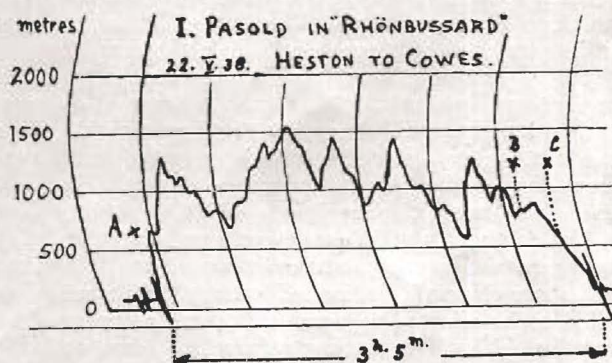 metres
I. PASOLD IN "RHÖNBUSSARD"
22. V. 38. HESTON TO COWES.
2000
1500
1000
500
0
A
B C
3 h. 5 m.